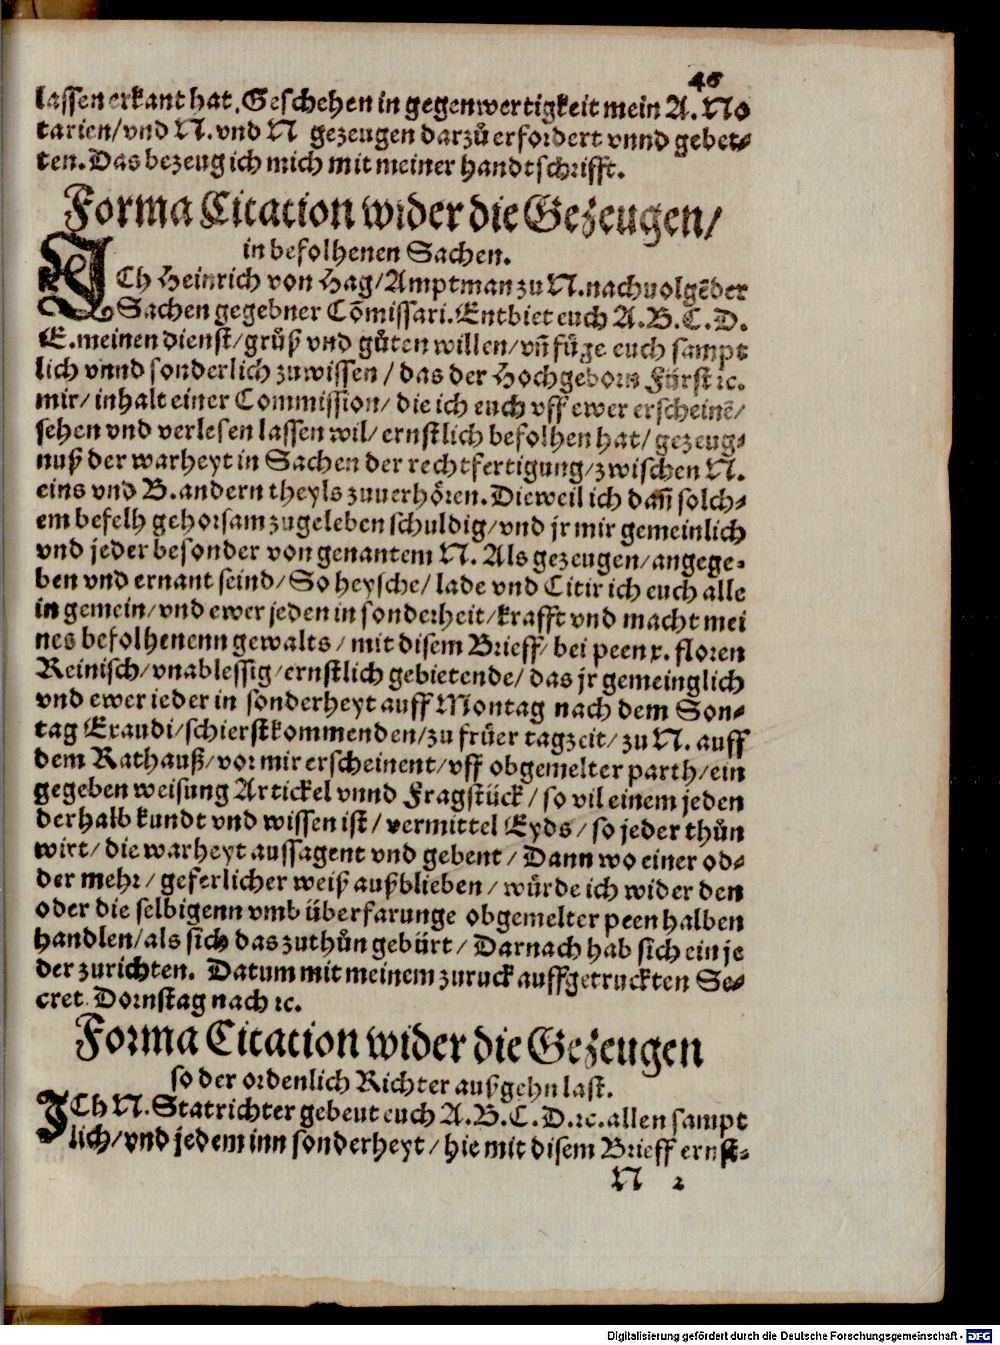 46
lassen erkant hat, Geschehen in gegenwertigkeit mein A. No
tarien/vnd N. vnd N gezeugen darzů erfordert vnnd gebet-
ten. Das bezeug ich mich mit meiner handtschrifft.
Forma Citacion wider die Gezeugen/
in befolhenen Sachen.
ICh Heinrich von Hag/Amptman zu N. nachuolgēder
Sachen gegebner Cōmissari. Entbiet euch A. B. C. D.
E. meinen dienst/grůß vnd gůten willen/vn̄ fůge euch sampt
lich vnnd sonderlich zuwissen/das der Hochgeborn Fürst ꝛc.
mir/inhalt einer Commission/die ich euch vff ewer erscheinē/
sehen vnd verlesen lassen wil/ernstlich befolhen hat/gezeug-
nuß der warheyt in Sachen der rechtfertigung/zwischen N.
eins vnd B. andern theyls zuuerhören. Dieweil ich dañ solch-
em befelh gehorsam zugeleben schuldig/vnd jr mir gemeinlich
vnd jeder besonder von genantem N. Als gezeugen/angege-
ben vnd ernant seind/So heysche/lade vnd Citir ich euch alle
in gemein/vnd ewer jeden in sonderheit/krafft vnd macht mei
nes befolhenenn gewalts/mit disem Brieff/bei peen x. floren
Reinisch/vnablessig/ernstlich gebietende/das jr gemeinglich
vnd ewer ieder in sonderheyt auff Montag nach dem Son-
tag Exaudi/schierstkommenden/zu frůer tagzeit/zu N. auff
dem Rathauß/vor mir erscheinent/vff obgemelter parth/ein
gegeben weisung Artickel vnnd Fragstück/so vil einem jeden
derhalb kundt vnd wissen ist/vermittel Eyds/so jeder thůn
wirt/die warheyt aussagent vnd gebent/Dann wo einer od-
der mehr/geferlicher weiß außblieben/würde ich wider den
oder die selbigenn vmb überfarunge obgemelter peen halben
handlen/als sich das zuthůn gebürt/Darnach hab sich ein je
der zurichten. Datum mit meinem zuruck auffgetruckten Se-
cret. Dornstag nach ꝛc.
Forma Citacion wider die Gezeugen
so der ordenlich Richter außgehn last.
ICh N. Statrichter gebeut euch A. B. C. D. ꝛc. allen sampt
lich/vnd jedem inn sonderheyt/hie mit disem Brieff ernst-
N 2
Digitalisierung gefördert durch die Deutsche Forschungsgemeinschaft - DFG